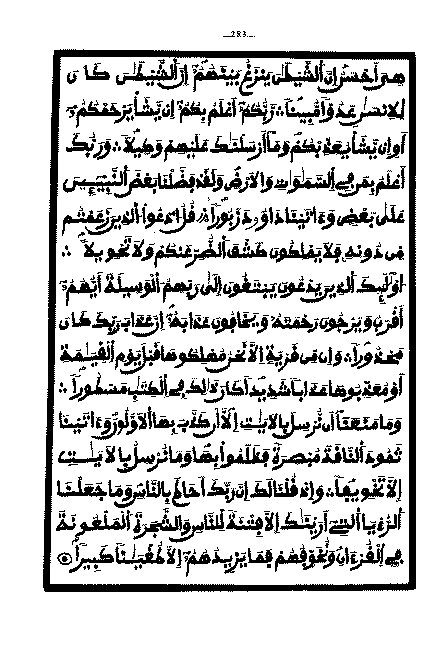 283
هي أحسن إن الشيطن ينزغ بينهم إن الشيطن كان
للانسن عدوا مبينا ∴ ربكم أعلم بكم إن يشأ يرحمكم
أو إن يشأ يعذبكم وما أرسلنك عليهم وكيلا ∴ وربك
أعلم بمن في السموات والارض ولقد فضلنا بعض النبيين
على بعض وءاتينا داود زبورا ∴ قل ادعوا الذين زعمتم
من دونه فلا يملكون كشف الضر عنكم ولا تحويلا ∴
أولئك الذين يدعون يبتغون إلى ربهم الوسيلة أيهم
أقرب ويرجون رحمته ويخافون عذابه إن عذاب ربك كان
محذورا ∴ وإن من قرية الا نحن مهلكوها قبل يوم القيمة
أو معذبوها عذابا شديدا كان ذلك في الكتب مسطورا ∴
وما منعنا أن نرسل بالايت إلا أن كذب بها الاولون وءاتينا
ثمود الناقة مبصرة فظلموا بها وما نرسل بالايت
إلا تخويفا ∴ وإذ قلنا لك إن ربك أحاط بالناس وما جعلنا
الرءيا التي أرينك إلا فتنة للناس والشجرة الملعونة
في القرءان ونخوفهم فما يزيدهم إلا طغينا كبيرا